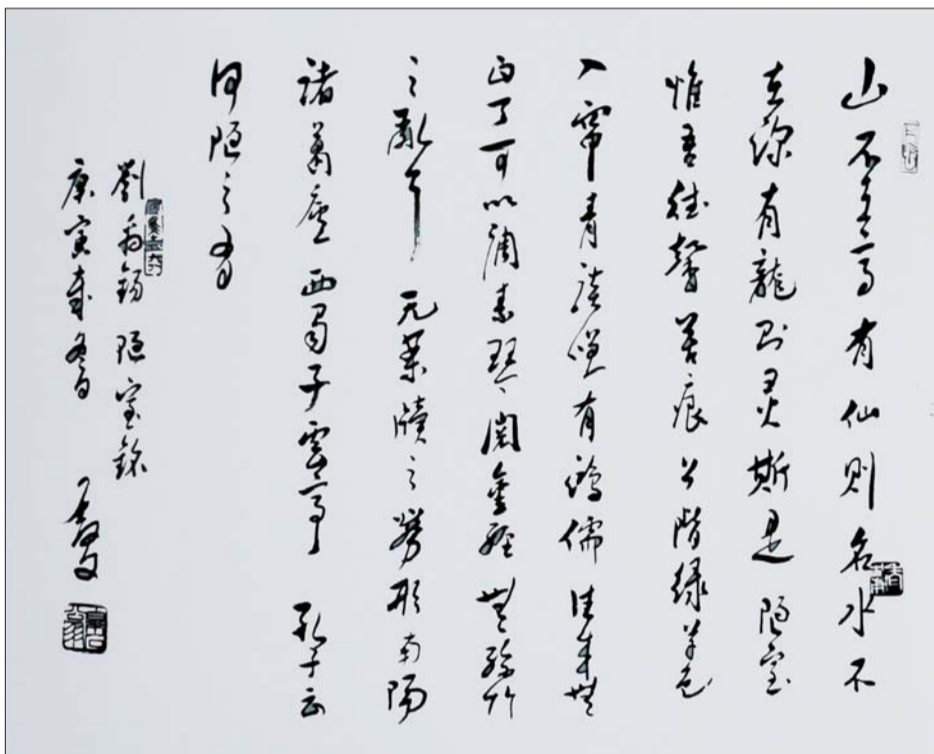 山不在高有仙则名水不
在深有龍则灵斯是陋室
惟吾德馨苔痕上階绿草色
入帘青談笑有鸿儒往来無
白丁可以调素琴阅金经無丝竹
之亂耳无案牍之劳形南陽
諸葛庐西蜀子雲亭孔子云
何陋之有
劉禹錫陋室銘
庚寅